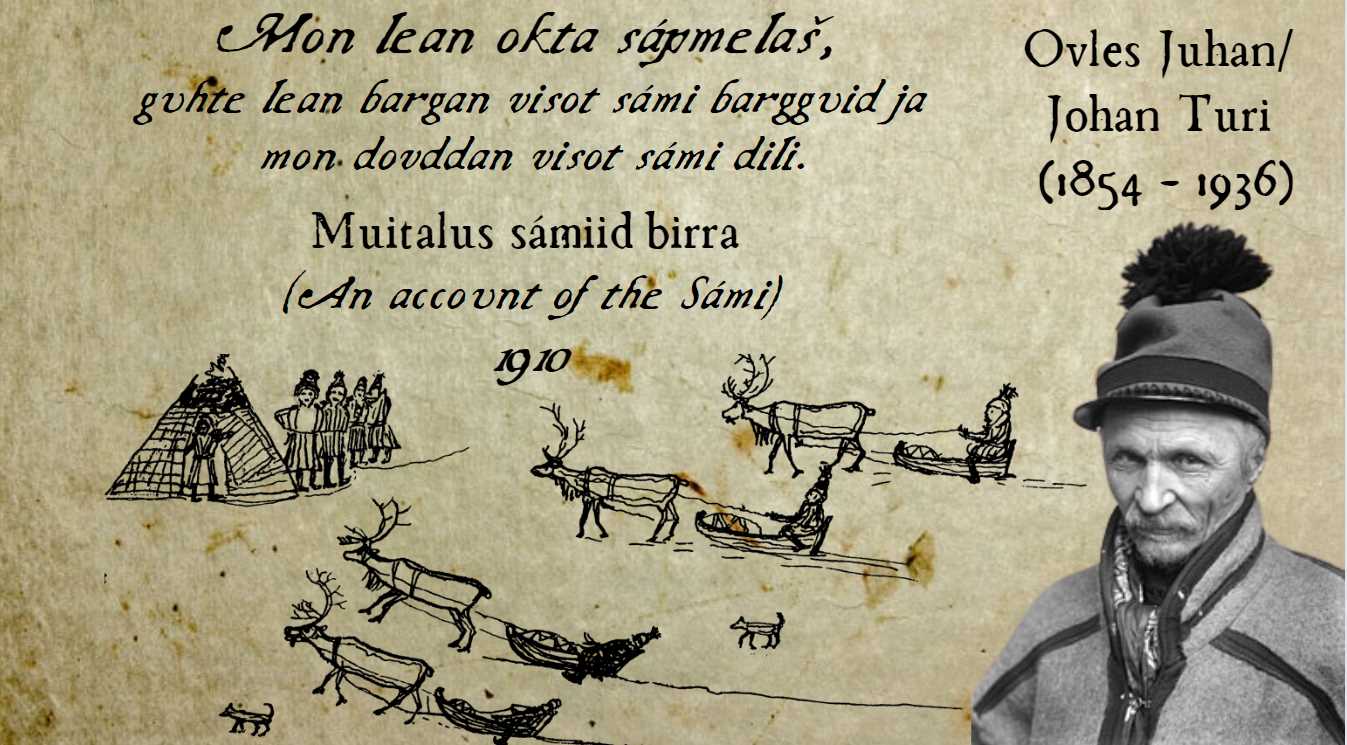 Mon lean okta sápmelaš,
guhte lean bargan visot sámi bargguid ja
mon dovddan visot sámi dili.
Muitalus sámiid birra
(An account of the Sámi)
1910
Ovles Juhan/
Johan Turi
(1854 - 1936)